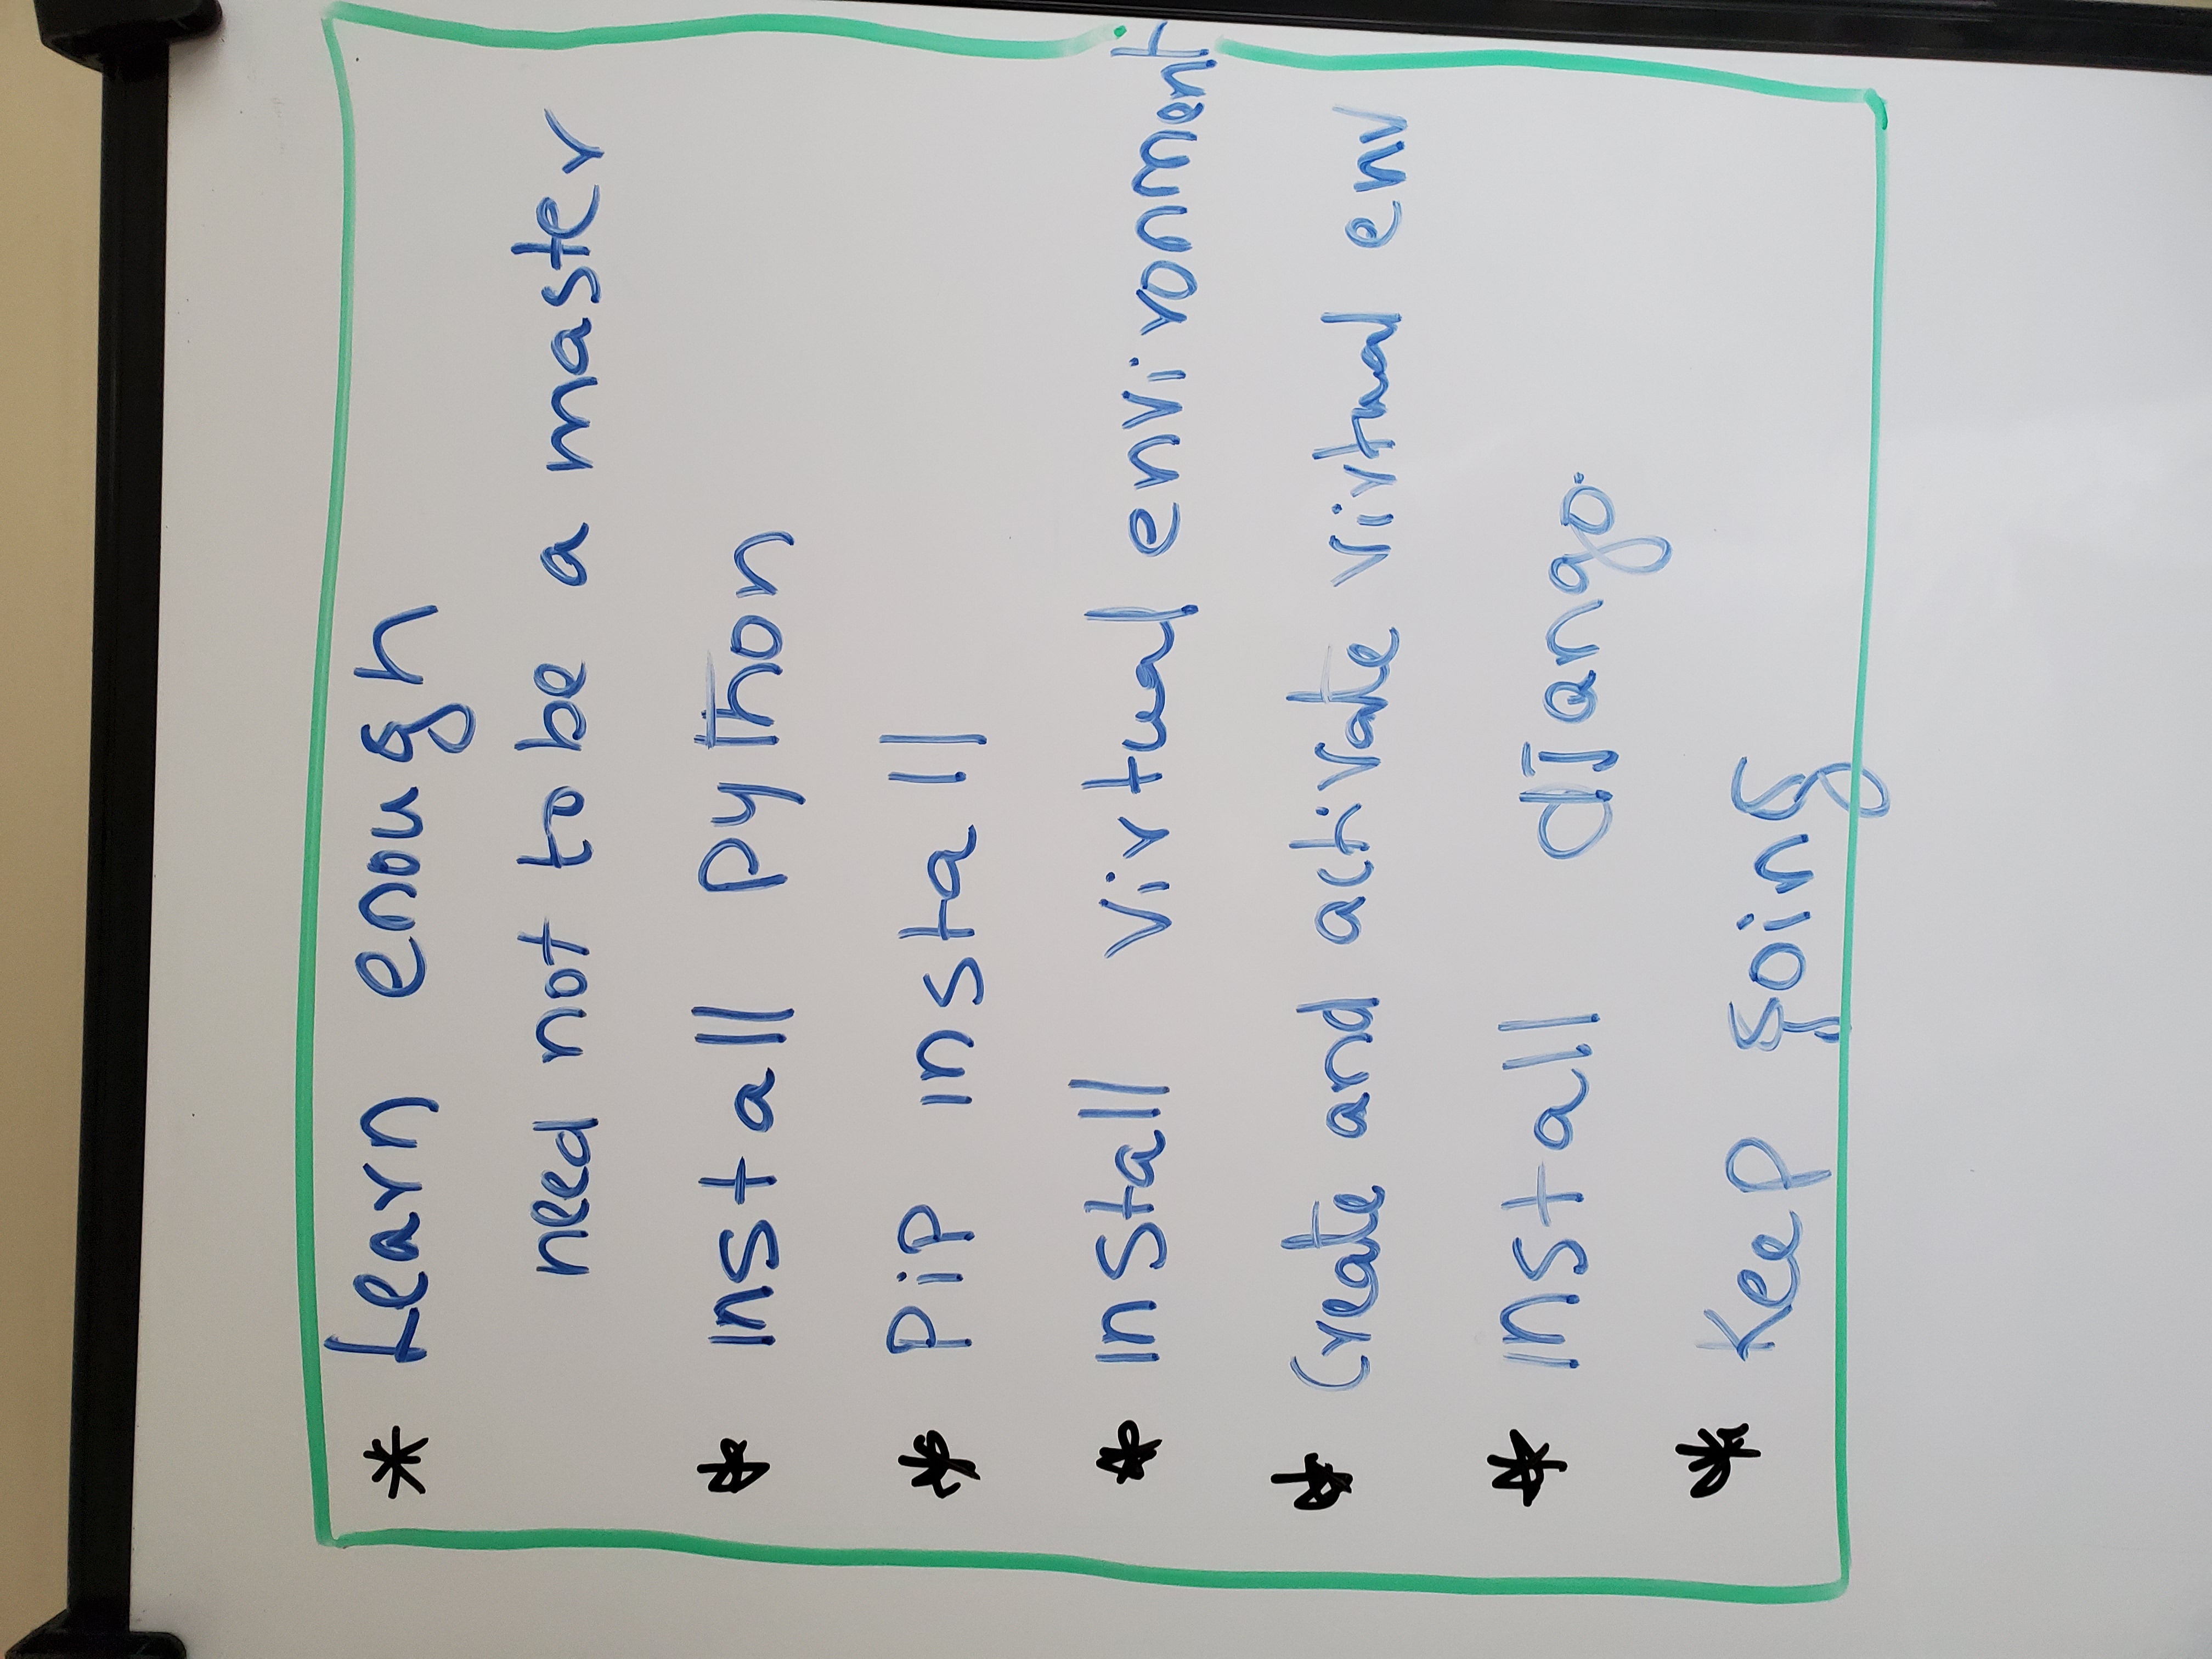 * Learn enough
need not to be a master
* Install Python
* PiP install
* Install virtual environment
* Create and activate virtual env
* Install django.
* Keep going